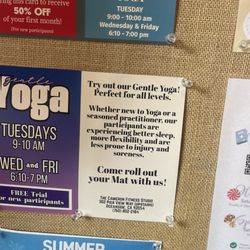 ing this card to receive
50% OFF
of your first month!
(For new participants)
9:00 - 10:00 am
Wednesday & Friday
6:10 - 7:00 pm
gentle
Yoga
TUESDAYS
9-10 AM
WED and FRI
6:10-7 PM
FREE Trial
for new participants
Try out our Gentle Yoga!
Perfect for all levels.
Whether new to Yoga or a
seasoned practitioner, our
participants are
experiencing better sleep,
more flexibility and are
less prone to injury and
soreness.
Come roll out
your Mat with us!
THE CAMERON FITNESS STUDIO
OCEANSIDE, CA 92054
SUMMER